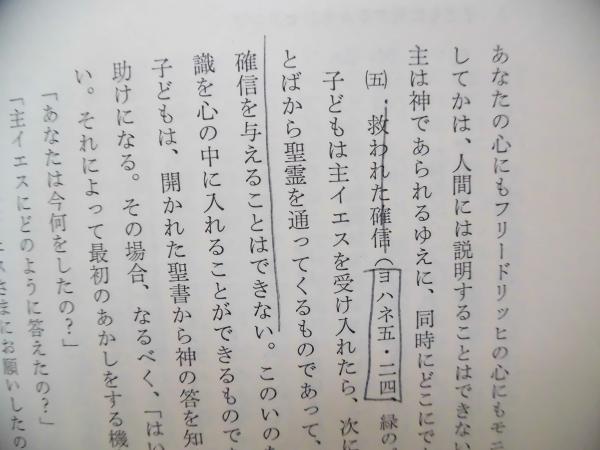 あなたの心にもフリードリッヒの心にもモニ
してかは、人間には説明することはできない
主は神であられるゆえに、同時にどこにで
㈤・救われた確信（ヨハネ五・二四 緑の
子どもは主イエスを受け入れたら、次に
とばから聖霊を通ってくるものであって、
確信を与えることはできない。このいの
識を心の中に入れることができるもので
子どもは、開かれた聖書から神の答を知
助けになる。その場合、なるべく、「はい
い。それによって最初のあかしをする機
「あなたは今何をしたの？」
「主イエスにどのように答えたの？」
さまにお願いしたの